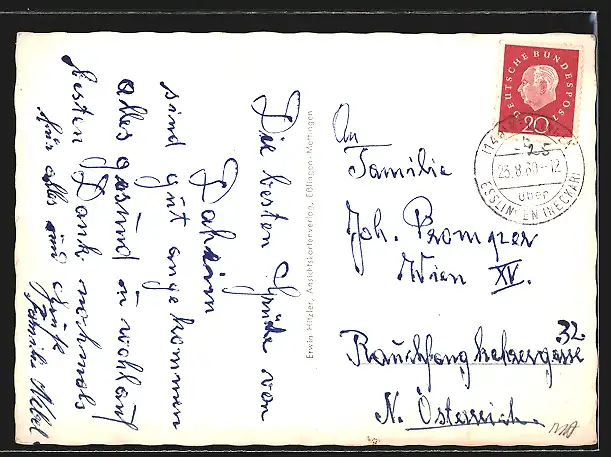 Die besten Grüße von
Daheim
sind gut angekommen
alles gesund u wohlauf
besten Dank nochmals
für alles und Grüße
Familie Nebel
Erwin Hitzler, Ansichtskartenverlag, Eßlingen-Mettingen
DEUTSCHE BUNDESPOST
20
23.8.60-12
über
ESSLINGEN (NECKAR)
An
Familie
Joh. Promper
Wien XV.
Rauchfangkehrergasse 32
N. Österreich.